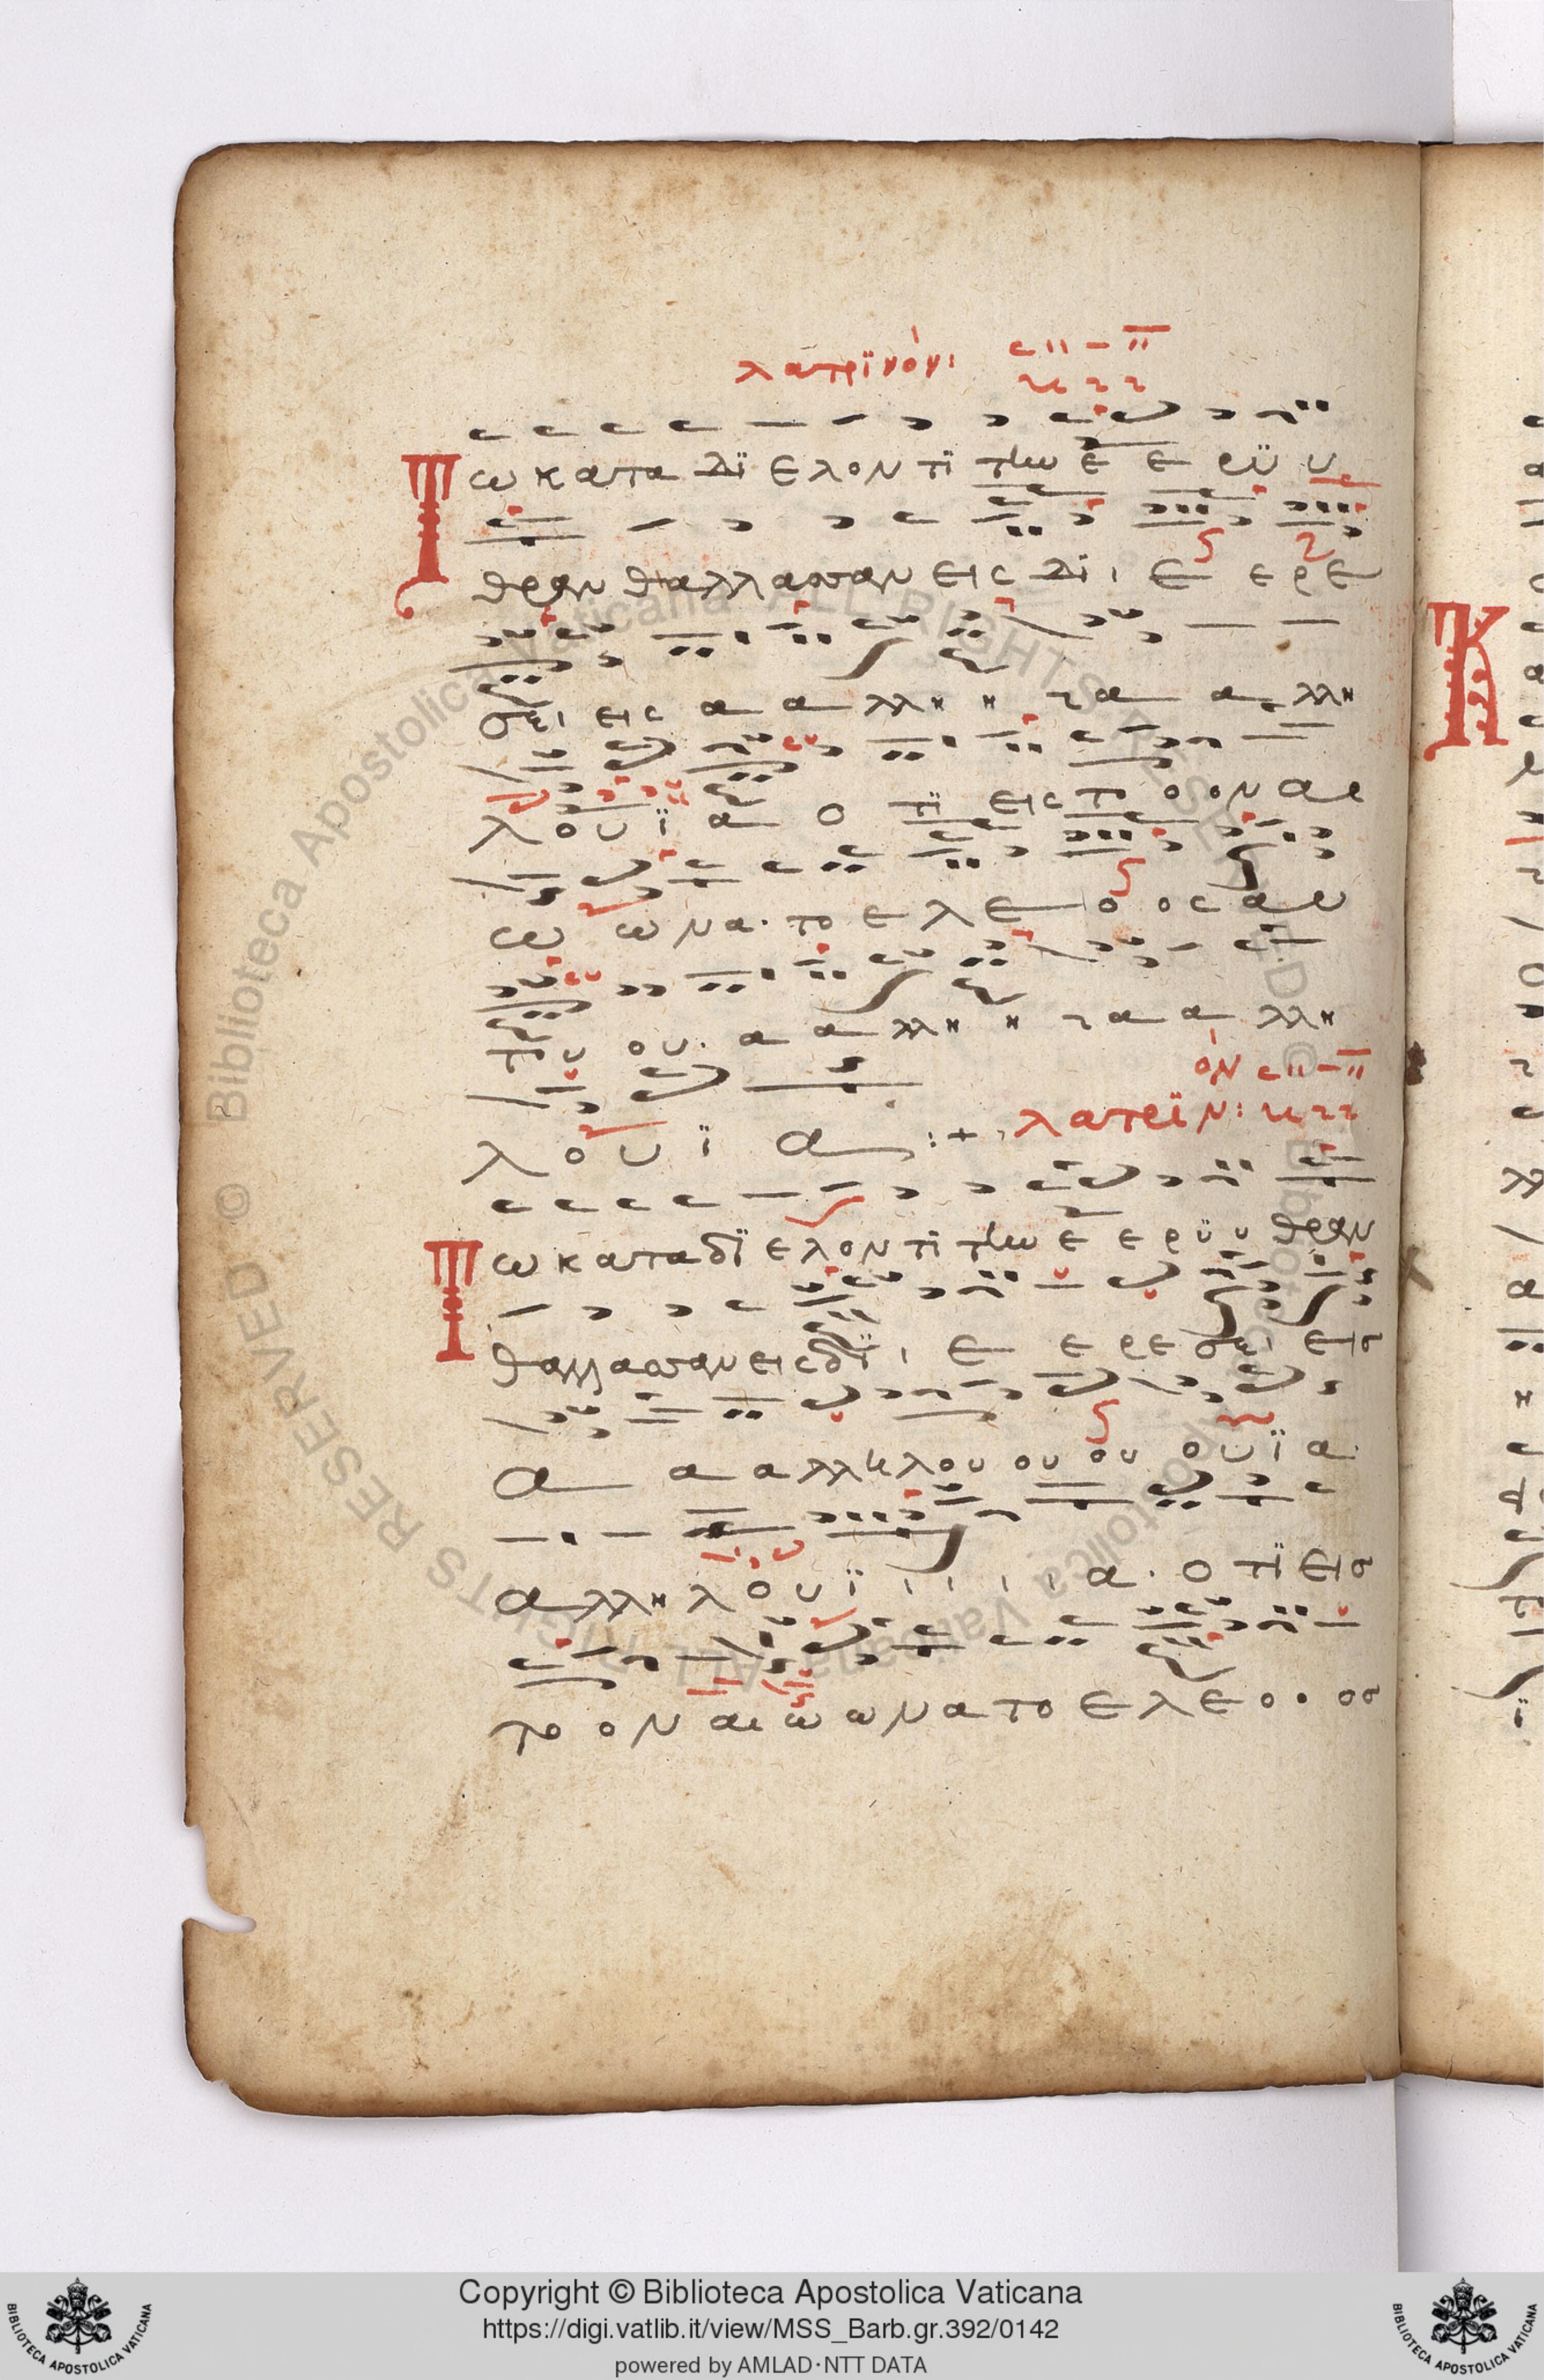 λατρϊνὸν:
Τω κατα δϊ ελον τϊ την ε ε ρϋ υ
θραν θαλλασσαν εις δϊ ι ε ε ρε
σει εις α α λλη η τα α λλη
λουϊα ο τϊ εις το ον αι
ω ωνα. το ελε ο ος αυ
του ου. α α λλη η τα α λλη
λουϊ α :+
λατρϊν: ὸν
Τω κατα δϊ ελον τϊ την ε ε ρϋ υ θραν
θαλλασσαν εις δϊ ι ε ε ρε σει εισ
α α α λλη λου ου ου ουϊα
αλλη λουϊ ι ι ι ι α. ο τϊ εισ
το ον αι ω ωνα το ελε ο ο οσ
Copyright © Biblioteca Apostolica Vaticana
https://digi.vatlib.it/view/MSS_Barb.gr.392/0142
powered by AMLAD·NTT DATA
Biblioteca Apostolica Vaticana ALL RIGHTS RESERVED ©
BIBLIOTECA APOSTOLICA VATICANA
BIBLIOTECA APOSTOLICA VATICANA